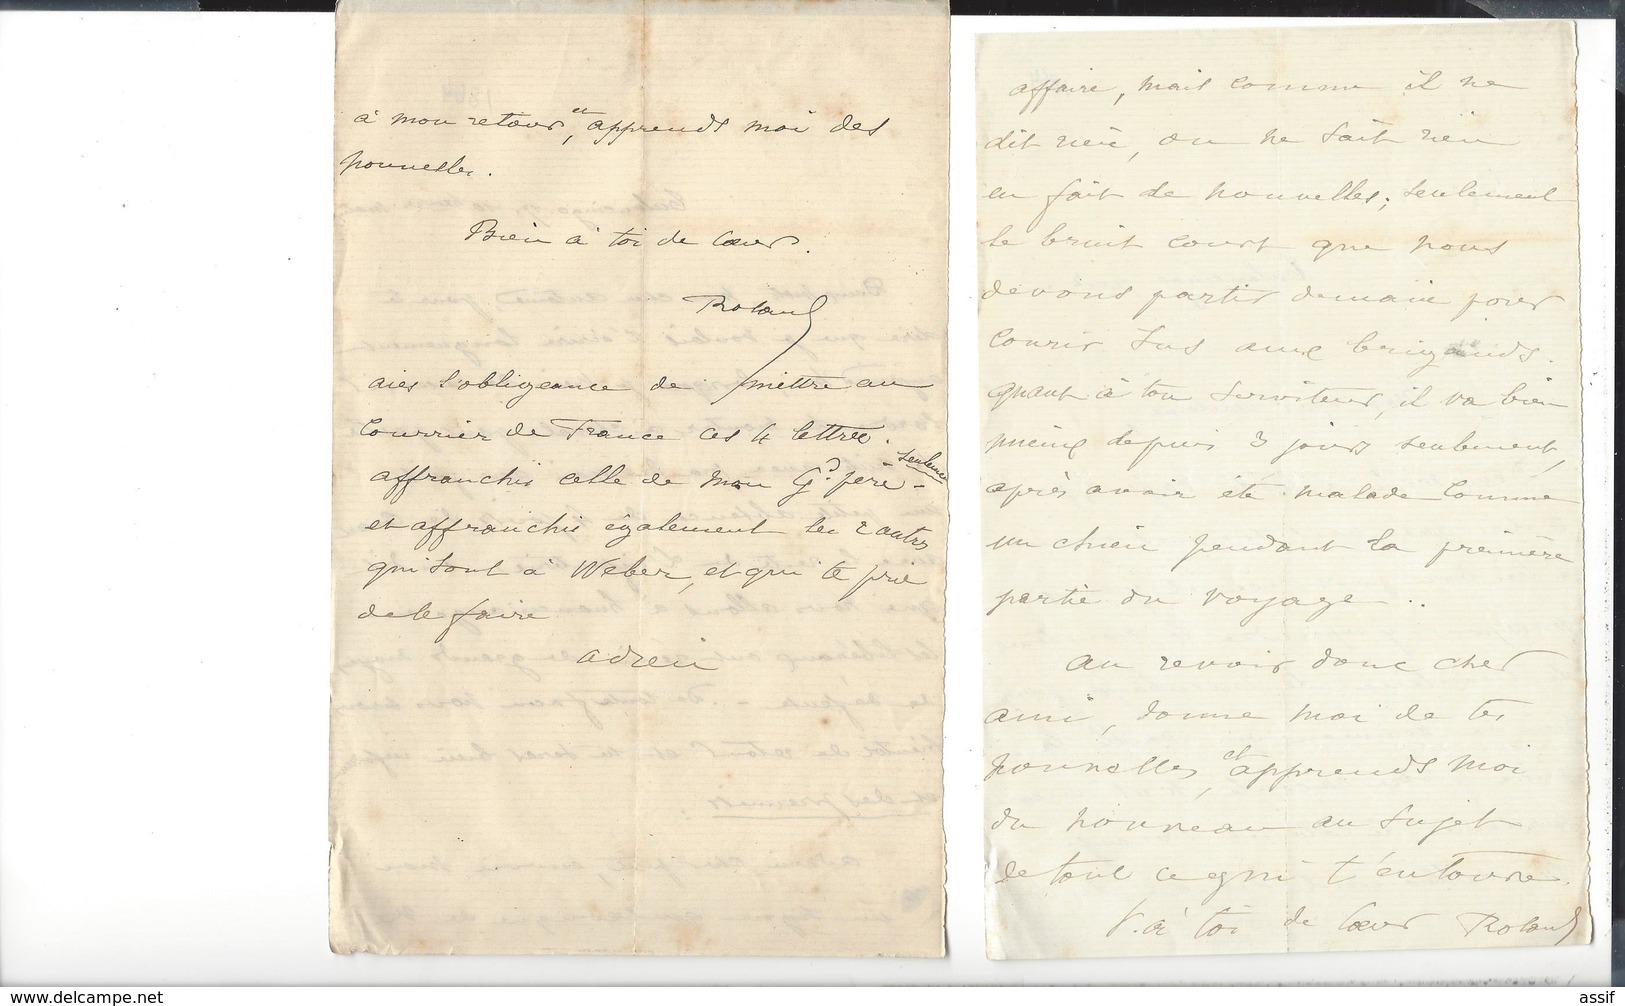 à mon retour, et apprends moi des
nouvelles.
Bien à toi de Coeur.
Roland
aies l'obligeance de mettre au
Courrier de France ces 4 lettres.
affranchis celle de mon Gd père seulement -
et affranchis également les 2 autres
qui sont à Weber, et qui te prie
de le faire
adrien
affaire, mais comme il ne
dit rien, on ne sait rien
en fait de nouvelles; seulement
le bruit court que nous
devons partir demain pour
Courir sus aux brigands.
quant à ton serviteur, il va bien
mieux depuis 3 jours seulement,
après avoir été malade comme
un chien pendant la première
partie du voyage..
au revoir donc cher
ami, donne moi de tes
nouvelles, et apprends moi
du nouveau au sujet
de tout ce qui t'entoure.
t. à toi de Coeur Roland
assif